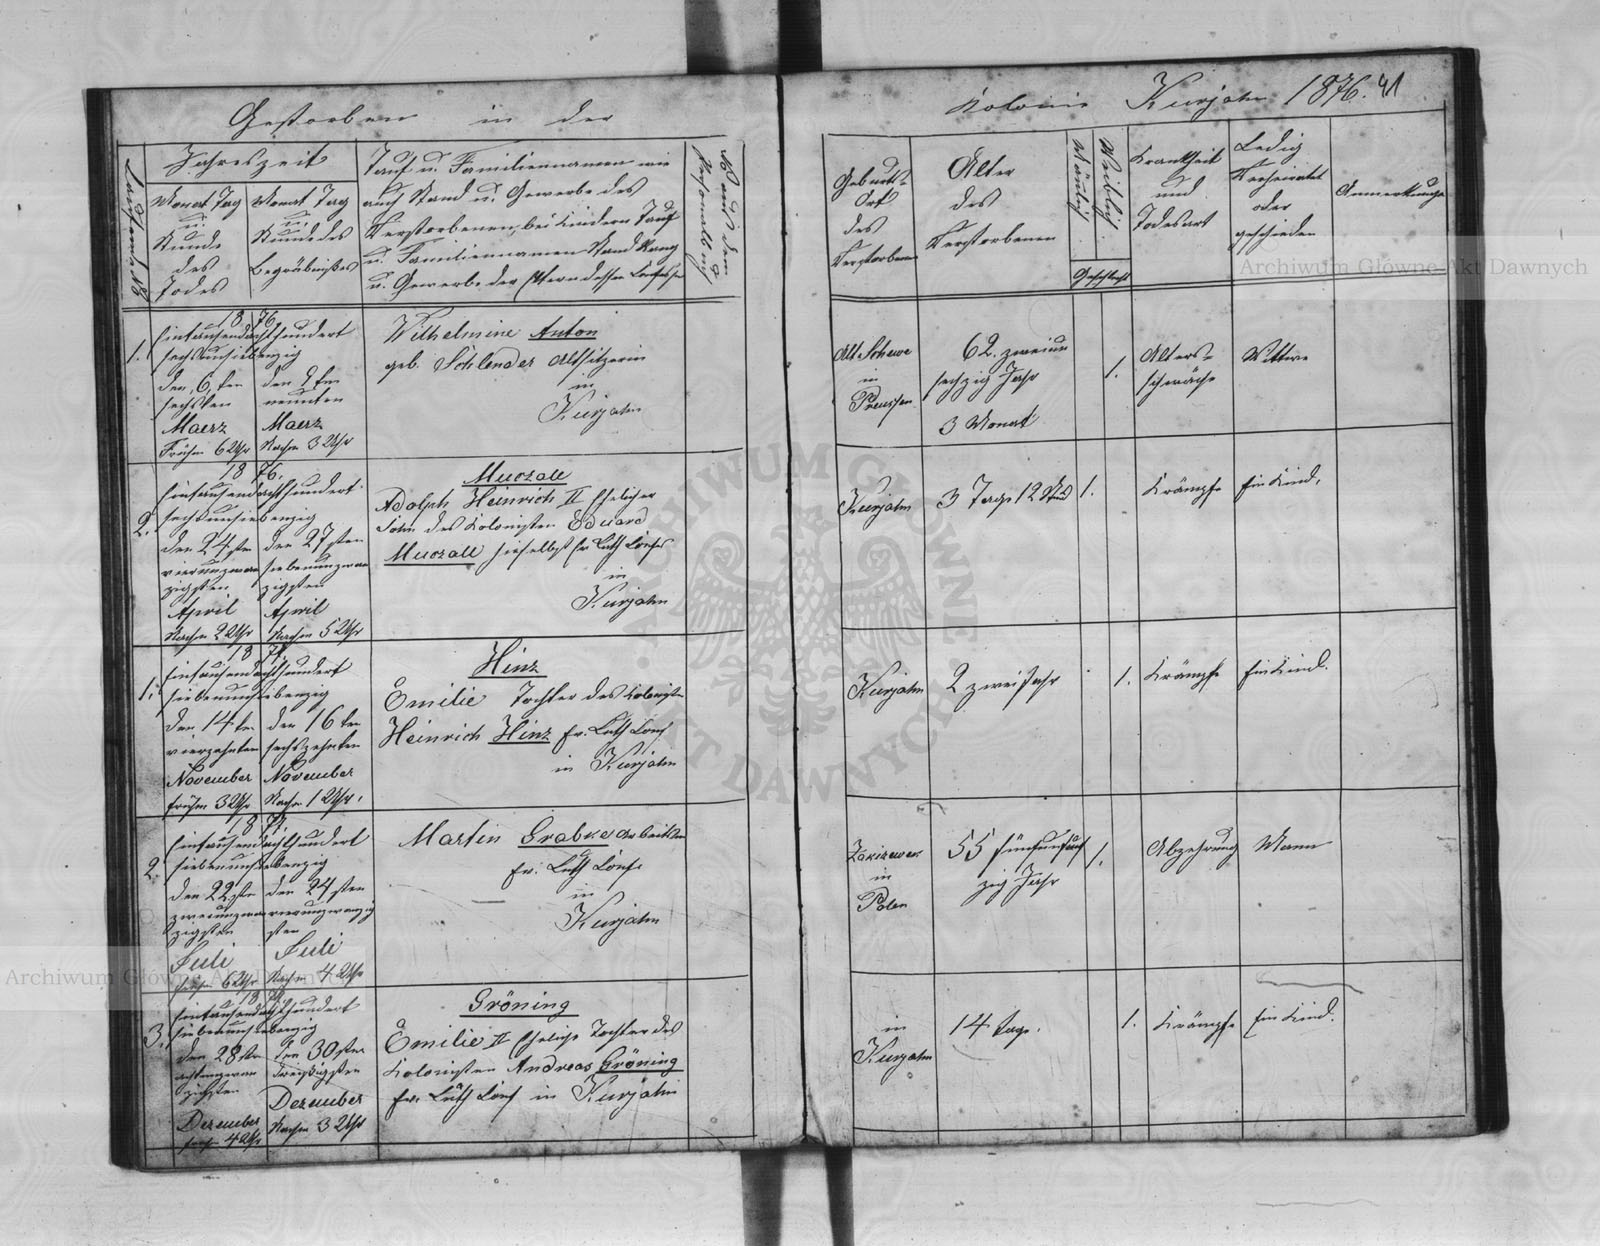 Gestorben in der
Kolonie Kurjahn 1876. 41
Jahreszeit
Monat Tag
u.
Stunde
des
Todes
Monat Tag
u.
Stunde des
Begräbnißes
Tauf u. Familiennamen wie
auch Stand u. Gewerbe des
Verstorbenen, bei Kindern Tauf
u. Familiennamen Stand Rang
u. Gewerbe der Eltern dessen
Geburts-
Ort
des
Verstorbenen
Alter
des
Verstorbenen
Männlich
Weiblich
Geschlecht
Krankheit
und
Todesart
Ledig
Verheiratet
oder
geschieden
Anmerkunge
1.
18 76
Eintausendachthundert
sechsunsiebenzig
den 6ten
sechsten
Maerz
Früh 6 Uhr
den 9ten
neunten
Maerz
Nachm 3 Uhr
Wilhelmine Anton
geb. Schlender Altsitzerin
in
Kurjahn
Alt Schewe
in
Preussen
62. zweiun
sechzig Jahr
3 Monat
1.
Alters-
schwäche
Wittwe
2.
18 76.
Eintausendachthundert
sechsunsiebenzig
den 24sten
vierunzwan
zigsten
April
Nachm 2 Uhr
den 27sten
siebenunzwan
zigsten
April
Nachm 5 Uhr
Muczall
Adolph Heinrich II Ehelicher
Sohn des Kolonisten Eduard
Muczall hieselbst Ev Luth Confes
in
Kurjahn
Kurjahn
3 Tage 12 Stund
1.
Krämpfe
Ein Kind.
1.
18 77.
Eintausendachthundert
siebenunsiebenzig
den 14ten
vierzehnten
November
früh 3 Uhr
den 16ten
sechszehnten
November
Nachm 1 Uhr.
Hinz
Emilie Tochter des Kolonisten
Heinrich Hinz Ev. Luth Conf
in Kurjahn
Kurjahn
2 zwei Jahr
1.
Krämpfe
Ein Kind.
2
18 77.
Eintausendachthundert
siebenunsiebenzig
den 22sten
zweiunzwan
zigsten
Juli
früh 6 Uhr
den 24sten
vierunzwanzig
sten
Juli
Nachm 4 Uhr
Martin Grabke Arbeitsm
Ev. Luth Confe
in
Kurjahn
in
Polen
55 fünfunfünf
zig Jahr
1.
Abzehrung
Mann
3.
18 77
Eintausendachthundert
siebenunsiebenzig
den 28sten
achtunzwan
zigsten
Dezember
früh 4 Uhr
den 30sten
dreißigsten
Dezember
Nachm 3 Uhr
Gröning
Emilie II Eheliche Tochter des
Kolonisten Andreas Gröning
Ev. Luth Conf in Kurjahn
in
Kurjahn
14 Tage.
1.
Krämpfe
Ein Kind.
Archiwum Główne Akt Dawnych
Archiwum Główne Akt Dawnych
ARCHIWUM GŁÓWNE AKT DAWNYCH